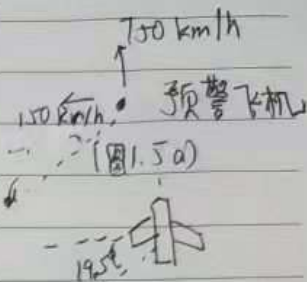 750 km/h
150 km/h 预警飞机
(图1.5a)
19.5t